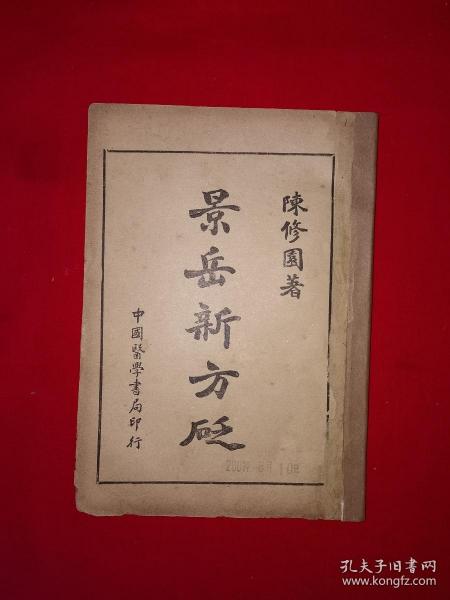 陳修園著
景岳新方砭
中國醫學書局印行
孔夫子旧书网
www.kongfz.com